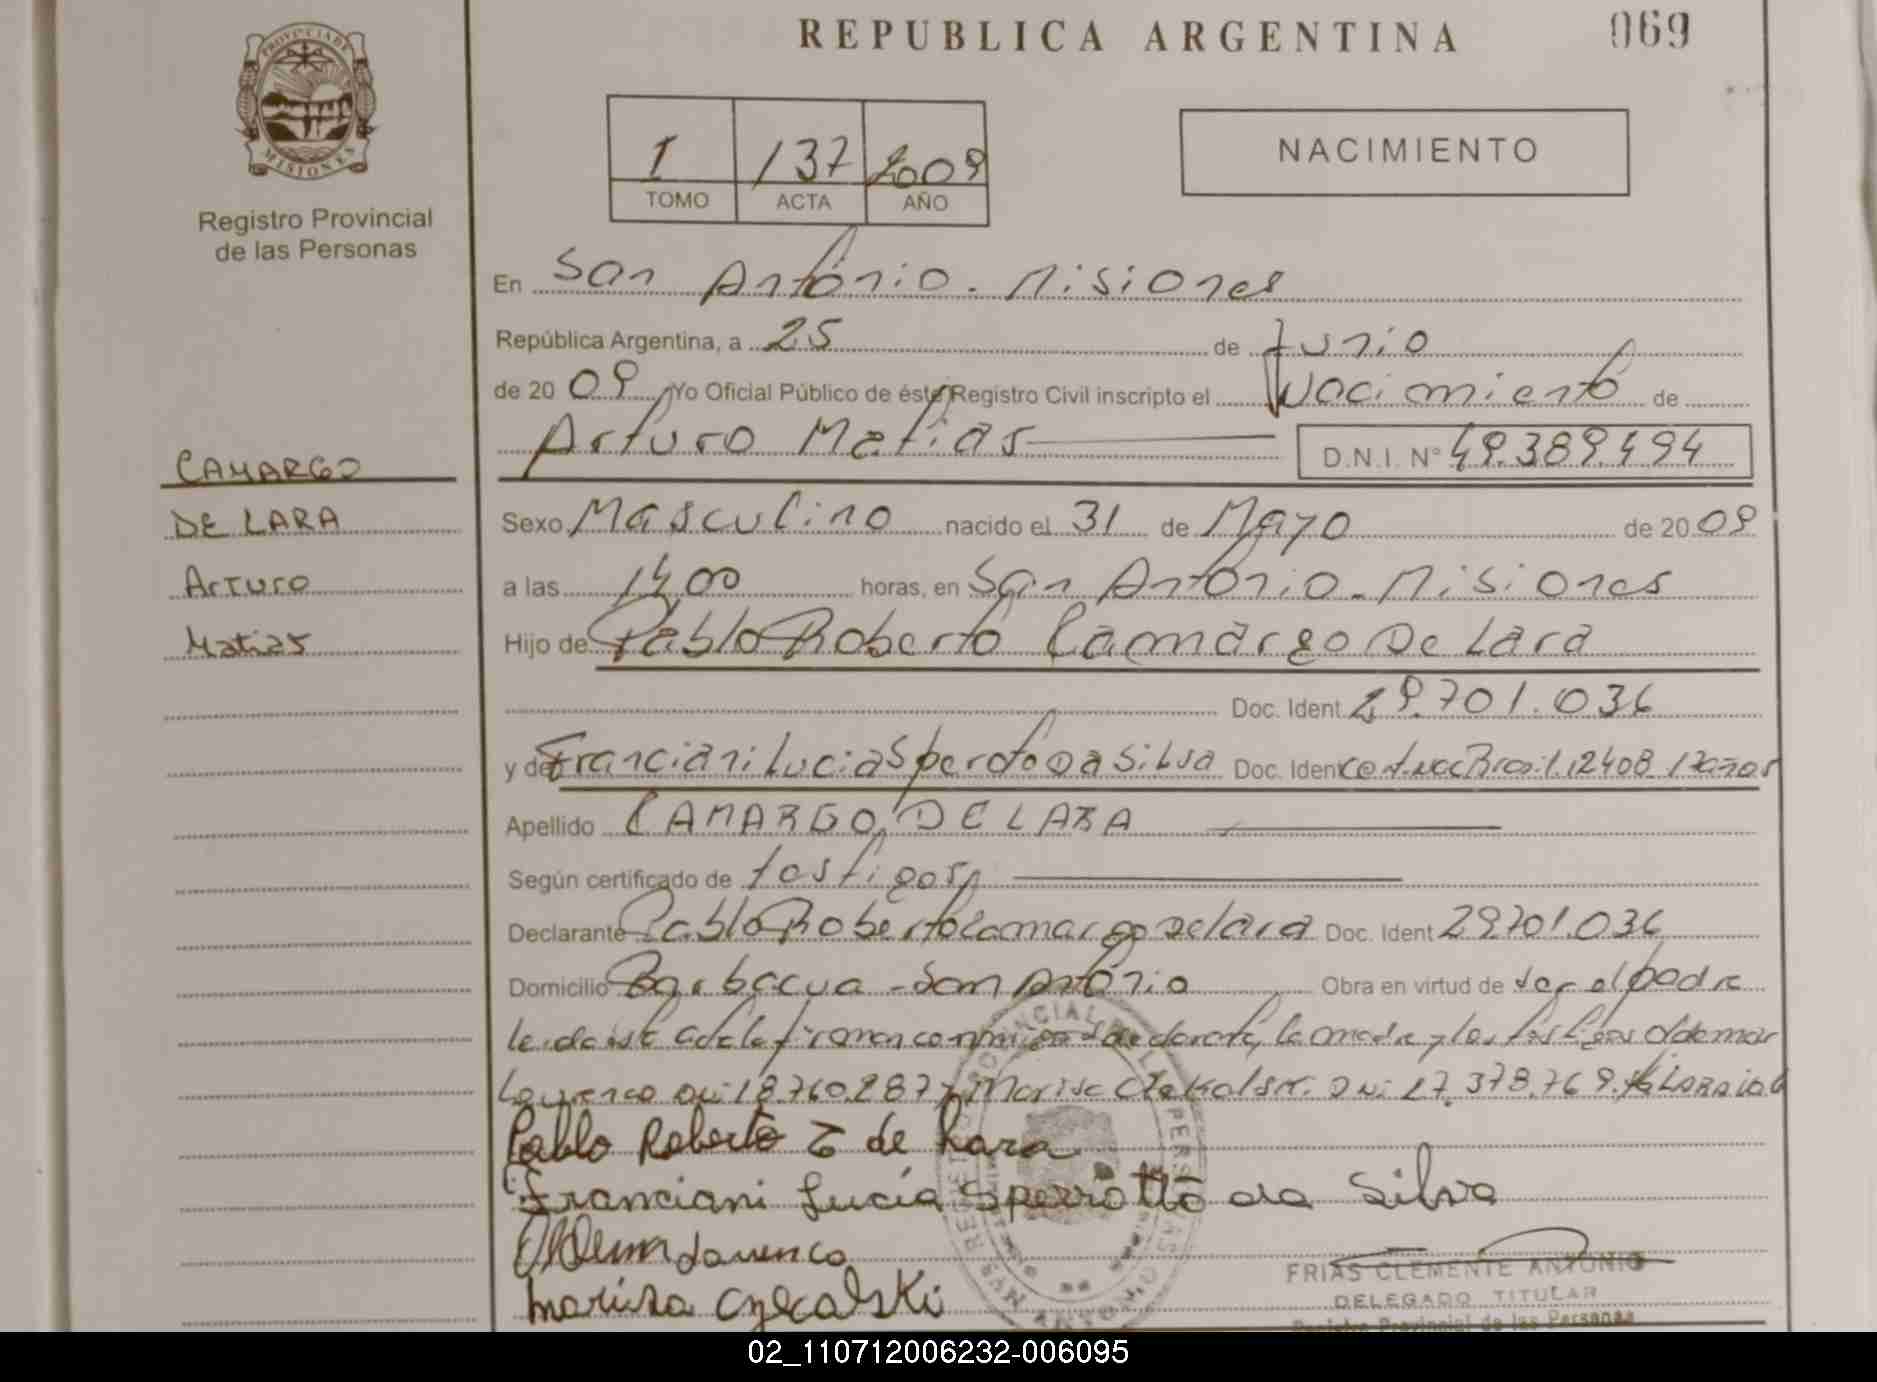 REPUBLICA ARGENTINA
069
PROVINCIA DE MISIONES
Registro Provincial
de las Personas
I 137 2009
TOMO ACTA AÑO
NACIMIENTO
En San Antonio. Misiones
República Argentina, a 25 de Junio
de 2009 Yo Oficial Público de éste Registro Civil inscripto el Nacimiento de
Arturo Matías D.N.I. Nº 49.389.494
CAMARGO
DE LARA
Arturo
Matias
Sexo Masculino nacido el 31 de Mayo de 2009
a las 14,00 horas, en San Antonio. Misiones
Hijo de Pablo Roberto Camargo De Lara
Doc. Ident 29.701.036
y de Franciani Lucia Speroto Da Silva Doc. Ident Cert.Nac Brasil.12408 17años
Apellido CAMARGO, DE LARA
Según certificado de testigos
Declarante Pablo Roberto Camargo De lara Doc. Ident 29.701.036
Domicilio Barbacua - San Antonio Obra en virtud de ser el padre
Leida el acta la firman conmigo el declarante, la madre y los testigos Oldemar
Lourenco DNI 18.760.287 y Marisa DNI 27.378.769.
Pablo Roberto C de Lara
Franciani Lucía Sperrotto da Silva
Oldemar Lourenco
Marisa Czekalski
FRIAS CLEMENTE ANTONIO
DELEGADO TITULAR
Registro Provincial de las Personas
02_110712006232-006095